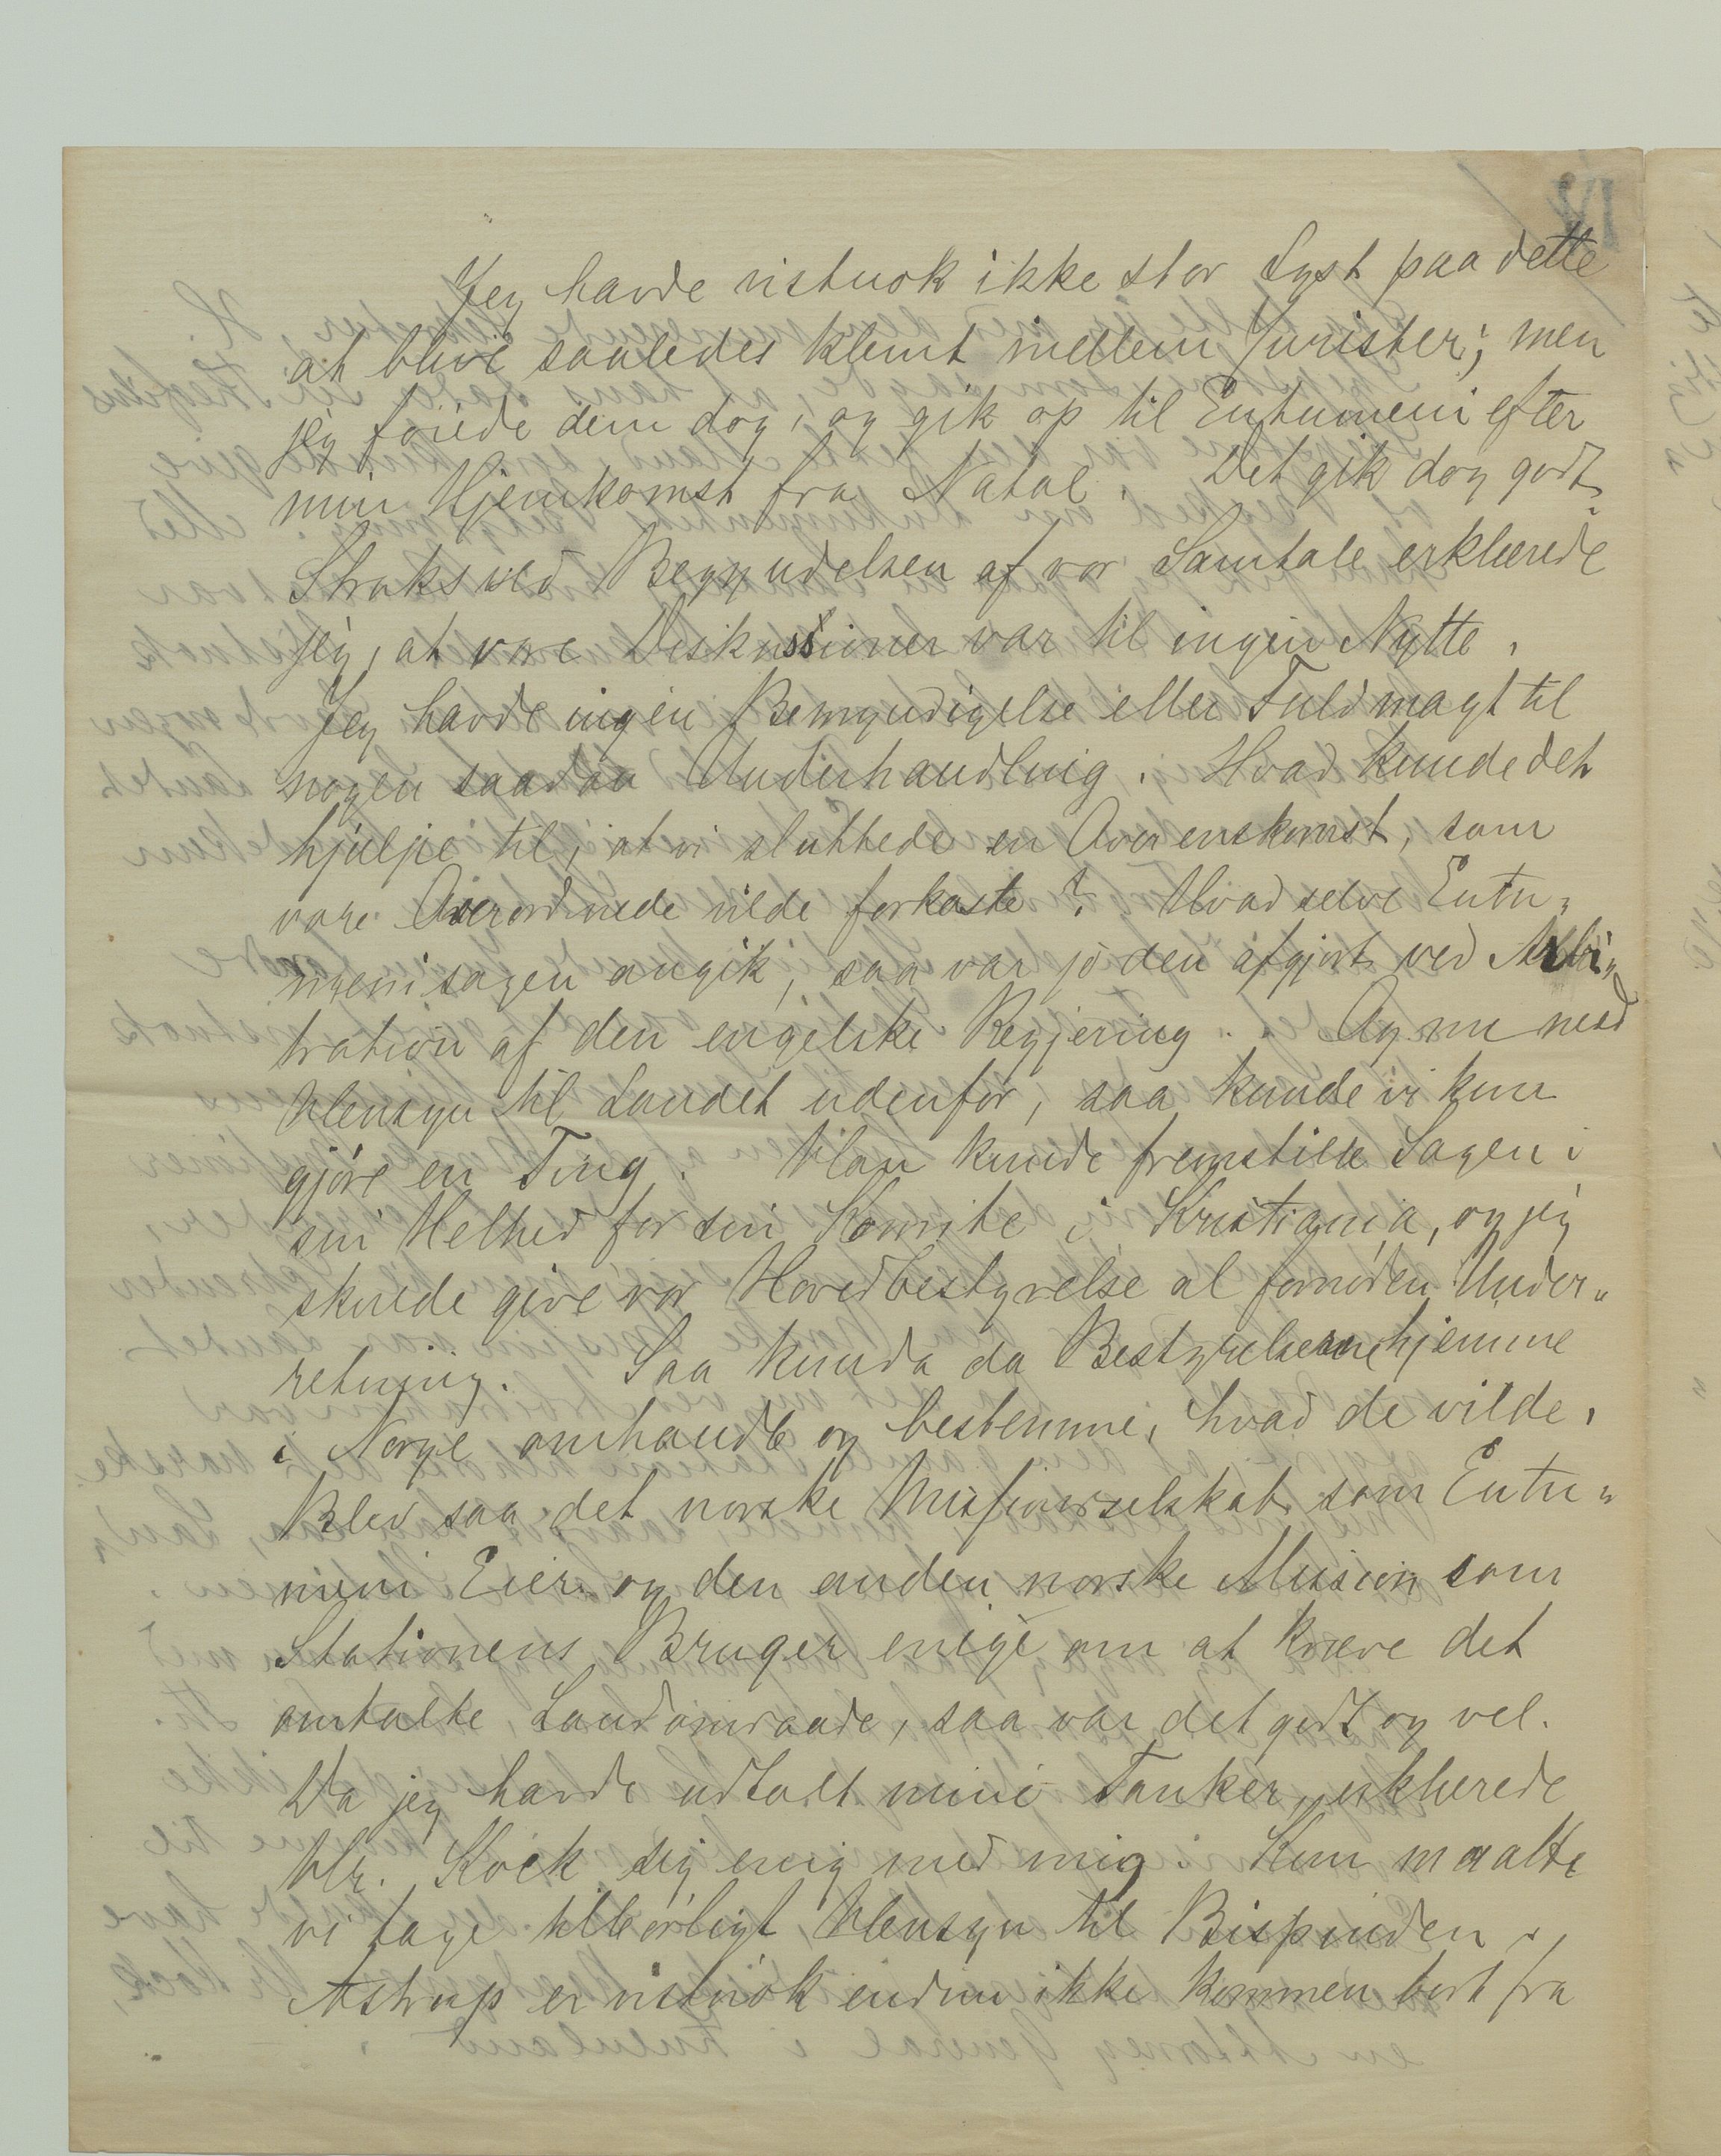 Jeg havde vistnok ikke stor Lyst paa dette
at blive saaledes klemt mellem Jurister; men
jeg føiede dem dog, og gik op til Entumeni efter
min Hjemkomst fra Natal. Det gik dog godt.
Straks ved Begyndelsen af vor Samtale erklærede
jeg, at vore Diskussioner var til ingen Nytte.
Jeg havde ingen Bemyndigelse eller Fuldmagt til
nogen saadan Underhandling. Hvad kunde det
hjælpe til, at vi sluttede en Overenskomst, som
vore Overordnede vilde forkaste? Hvad selve Entu-
menisagen angik, saa var jo den afgjort ved Arbi-
tration af den engelske Regjering. Og nu med
Hensyn til Landet udenfor, saa kunde vi kun
gjøre en Ting. Han kunde fremstille Sagen i
sin Helhed for sin Komite i Kristiania, og jeg
skulde give vor Hovedbestyrelse al fornøden Under-
retning. Saa kunde da Bestyrelserne hjemme
i Norge omhandle og bestemme, hvad de vilde.
Blev saa det norske Missionsselskab som Entu-
meni Eier og den anden norske Mission som
Stationens Bruger enige om at kræve det
omtalte Landomraade, saa var det godt og vel.
Da jeg havde udtalt mine Tanker, erklærede
Hr. Kock sig enig med mig. Kun maatte
vi tage tilbørligt Hensyn til Bispinden.
Astrup er vistnok endnu ikke kommen bort fra